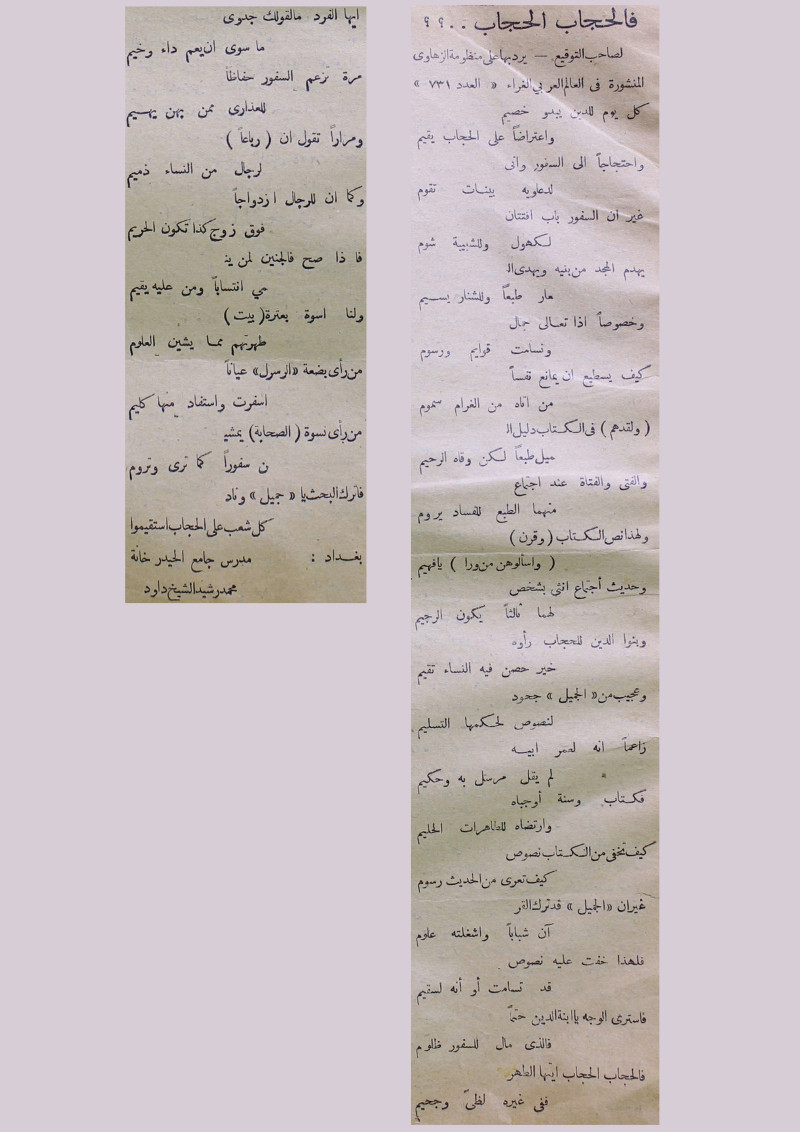 فالحجاب الحجاب . . ؟ ؟
لصاحب التوقيع — يرد بها على منظومة الزهاوى
المنشورة فى العالم العربي الغراء « العدد ٧٣١ »
كل يوم للدين يبدو خصيم
واعتراضاً على الحجاب يقيم
واحتجاجاً الى السفور وانى
لدعاويه بينات تقوم
غير ان السفور باب افتتان
لكهول وللشبيبة شوم
يهدم المجد من بنيه ويهدى ال
عار طبعاً وللشنار يسيم
وخصوصاً اذا تعالى جمال
وتسامت قوايم ورسوم
كيف يسطيع ان يمانع نفساً
من اتاه من الغرام سموم
( ولقدهم ) فى الكتاب دليل ال
ميل طبعاً لكن وقاه الرحيم
والفتى والفتاة عند اجتماع
منهما الطبع للفساد يروم
ولهذا نص الكتاب ( وقرن )
( واسألوهن من ورا ) يافهيم
وحديث أجتماع انثى بشخص
لهما ثالثاً يكون الرجيم
وبنوا الدين للحجاب رأوه
خير حصن فيه النساء تقيم
وعجيب من « الجميل » جحود
لنصوص لحكمها التسليم
زاعماً انه لعمر ابيه
لم يقل مرسل به وحكيم
فكتاب وسنة أوجباه
وارتضاه للطاهرات الحليم
كيف تخفى من الكتاب نصوص
كيف تعرى من الحديث رسوم
غير ان « الجميل » قد ترك القر
آن شباباً واشغلته علوم
فلهذا خفت عليه نصوص
قد تسامت أو أنه لسقيم
فاسترى الوجه ياابنة الدين حتماً
فالذى مال للسفور ظلوم
فالحجاب الحجاب ايتها الطهر
ففى غيره لظىً وجحيم
ايها الفرد مالقولك جدوى
ما سوى ان يعم داء وخيم
مرة تزعم السفور حفاظاً
للعذارى ممن بهن يهيم
ومراراً تقول ان ( رباعاً )
لرجال من النساء ذميم
وكما ان للرجال ازدواجاً
فوق زوج كذا تكون الحريم
فاذا صح فالجنين لمن ين
مي انتساباً ومن عليه يقيم
ولنا اسوة بعترة ( بيت )
طهرتهم مما يشين العلوم
من رأى بضعة «الرسول» عياناً
اسفرت واستفاد منها كليم
من رأى نسوة ( الصحابة ) يمشي
ن سفوراً كما ترى وتروم
فاترك البحث يا « جميل » وناد
كل شعب على الحجاب استقيموا
بغداد : مدرس جامع الحيدرخانة
محمد رشيد الشيخ داود